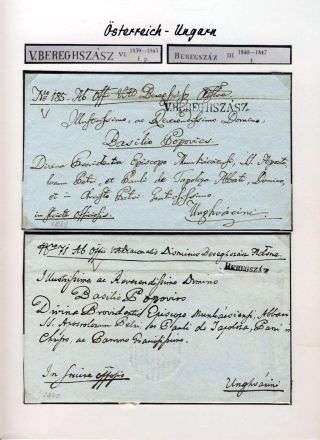 Österreich - Ungarn
V.BEREGHSZÁSZ VI. 1839-1843 f. p.
BEREGSZÁZ III 1840-1847 f.
No 185. Ab Offi
V.BEREGHSZÁSZ
Illustrissimo, ac Reverendissimo Domino
Basilio Popovics
Divina Providentia Episcopo Munkácsiensi, SS. Aposto
lorum Petri, et Pauli de Tapolcza Abbati, Domino,
et in Christo Patri Gratiosissimo
in sociis Officiosis
Unghvárini
71 Ab Offi Dominii Bereghszász
BEREGSZÁZ
Illustrissimo ac Reverendissimo Domino
Basilio Popovics
Divina Providentia Episcopo Munkácsiensi, Abbati
SS. Apostolorum Petri, et Pauli de Tapolcza, Patri in
Christo, ac Domino Gratiosissimo
In officiosis
Unghvárini